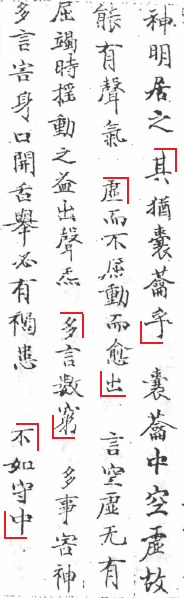 神明居之其猶橐籥乎橐籥中空虛故
能有聲氣虛而不屈動而愈出言空虛无有
屈竭時揺動之益出聲炁多言數窮多事害神
多言害身口開舌舉必有禍患不如守中